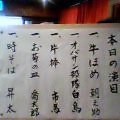 本日の演目
一 牛ほめ 朝之助
一 オバサン部隊 白鳥
一 片棒 市馬
一 お菊の皿 喬太郎
一 時そば 昇太